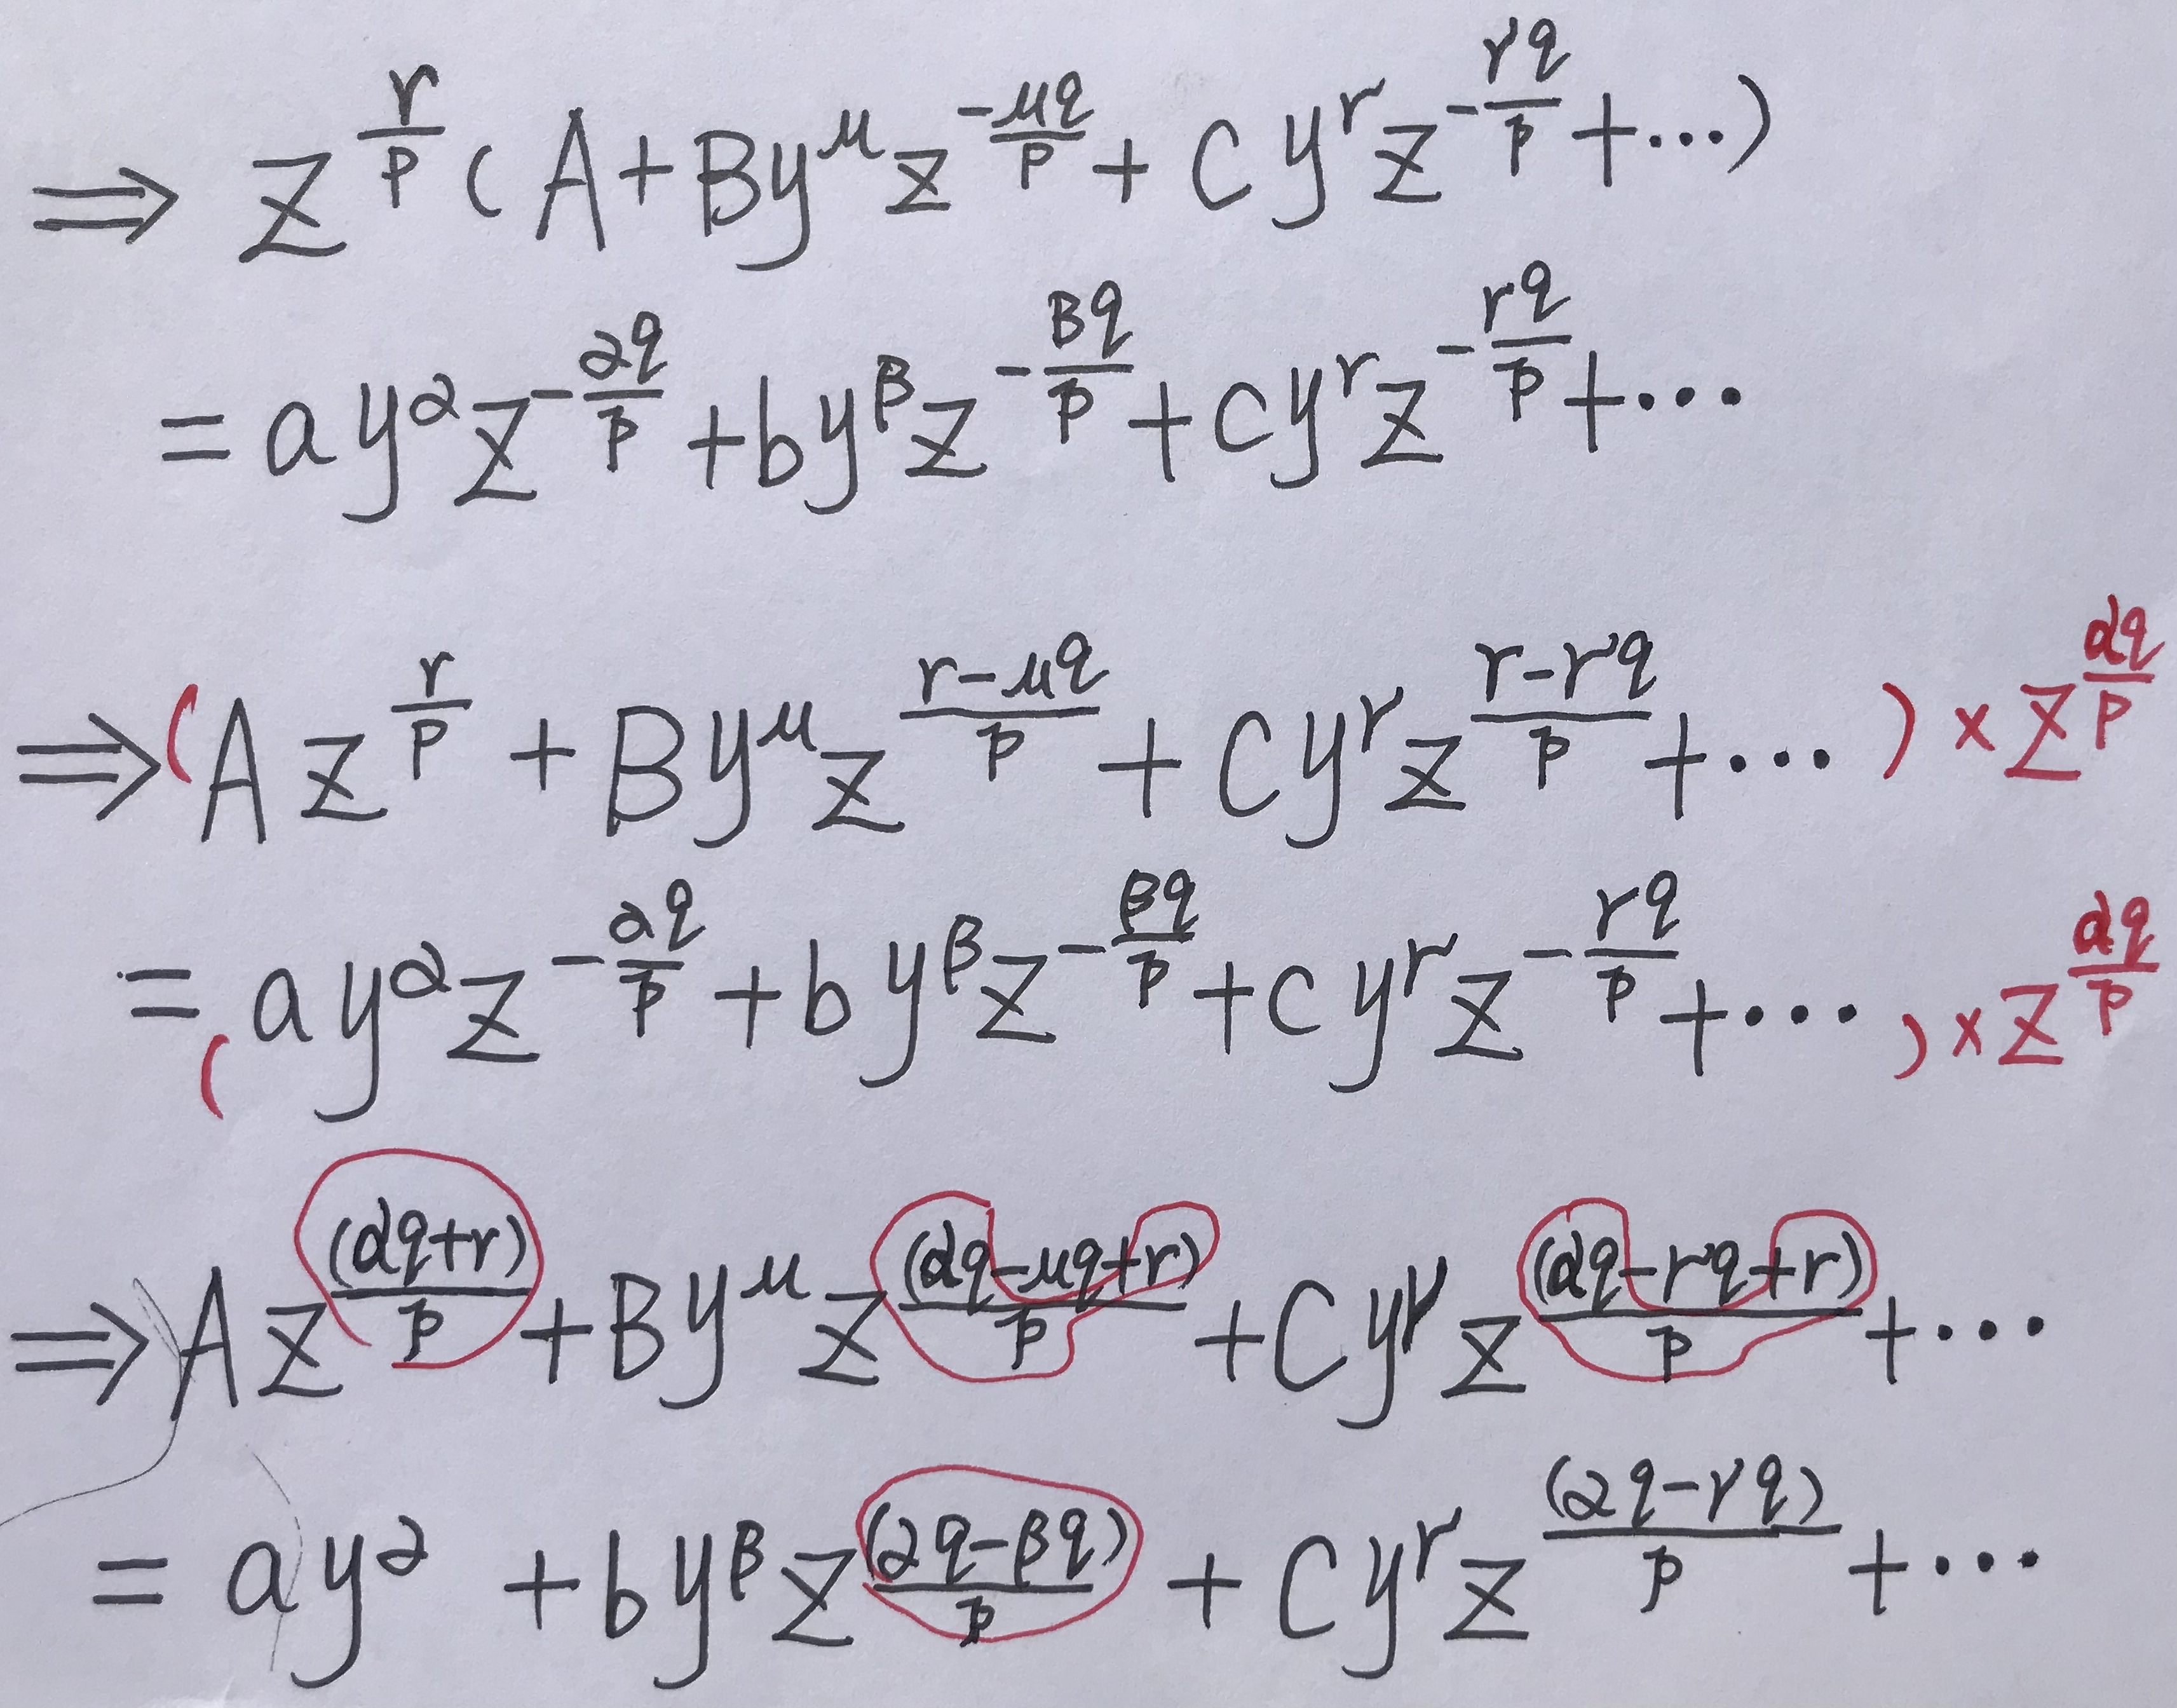 ⇒ z^{r/p} (A + By^μ z^{-μq/p} + Cy^ν z^{-νq/p} + ⋯)
= ay^α z^{-αq/p} + by^β z^{-βq/p} + cy^γ z^{-γq/p} + ⋯
⇒ (Az^{r/p} + By^μ z^{(r-μq)/p} + Cy^ν z^{(r-νq)/p} + ⋯) × z^{αq/p}
= (ay^α z^{-αq/p} + by^β z^{-βq/p} + cy^γ z^{-γq/p} + ⋯) × z^{αq/p}
⇒ Az^{(αq+r)/p} + By^μ z^{(αq-μq+r)/p} + Cy^ν z^{(αq-νq+r)/p} + ⋯
= ay^α + by^β z^{(αq-βq)/p} + cy^γ z^{(αq-γq)/p} + ⋯